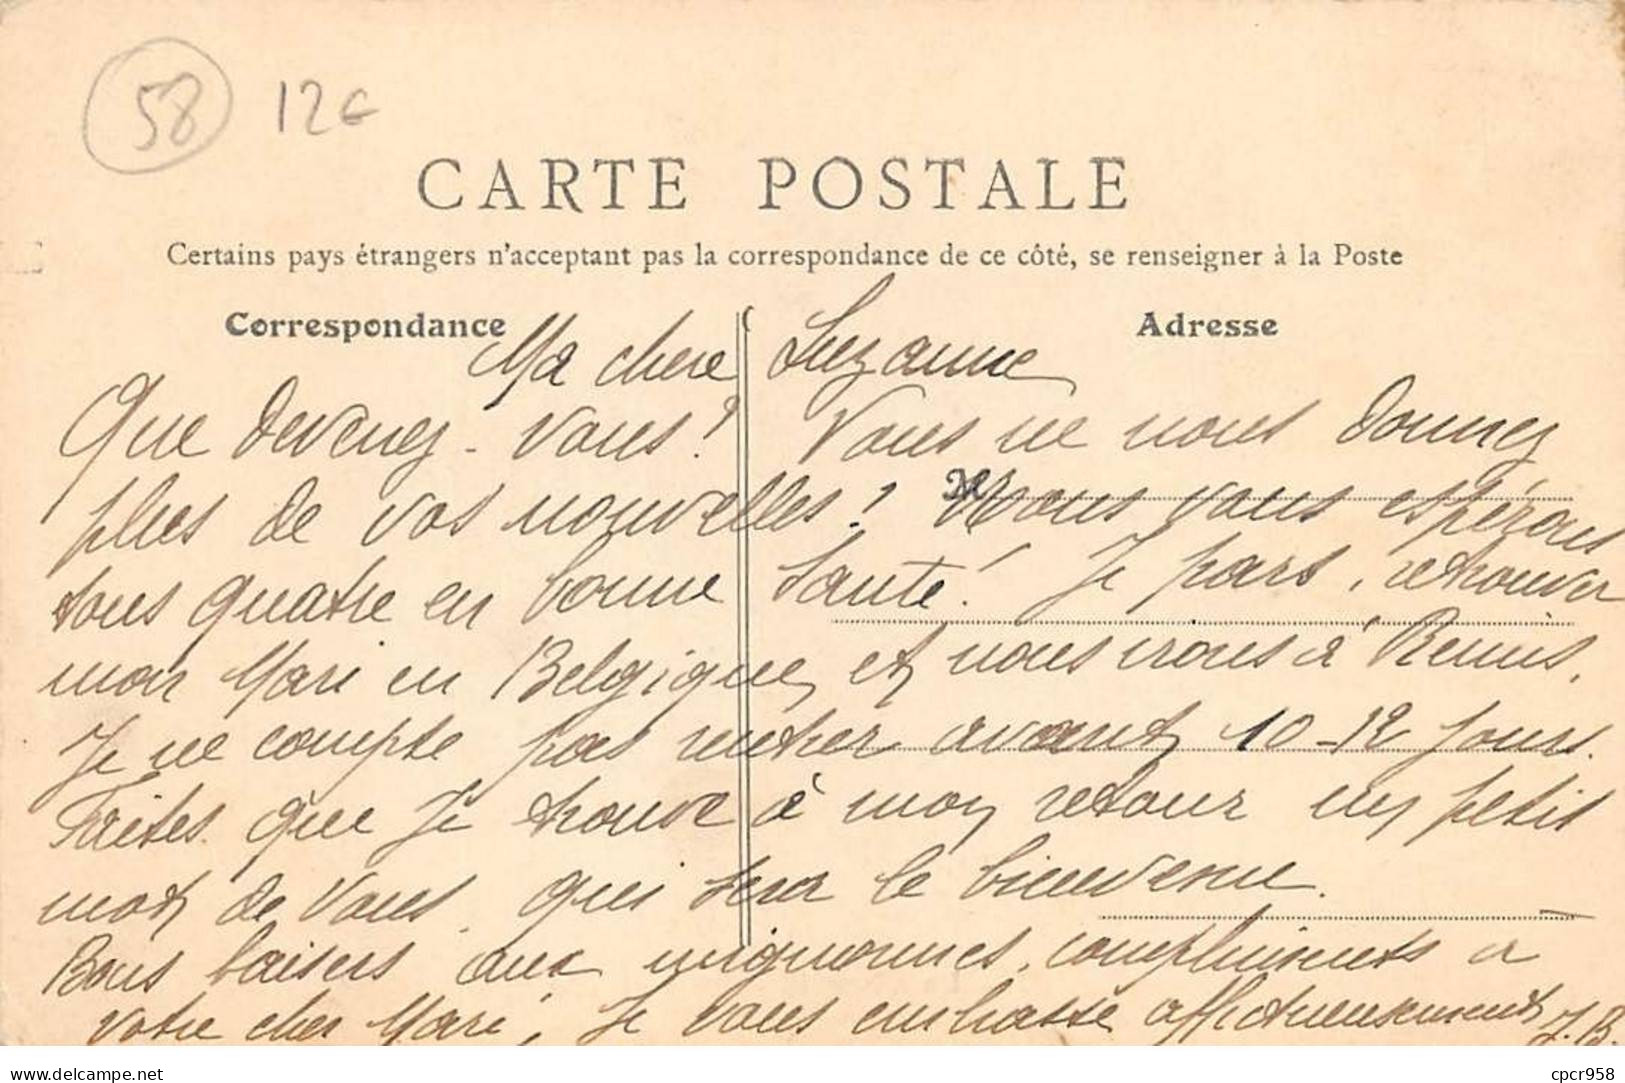 58 12€
CARTE POSTALE
Certains pays étrangers n'acceptant pas la correspondance de ce côté, se renseigner à la Poste
Correspondance Adresse
Ma chere Suzanne
Que devenez-vous? Vous ne nous donnez
plus de vos nouvelles! M Nous vous espérons
tous quatre en bonne santé! Je pars, retrouver
mon Mari en Belgique, et nous irons à Reims.
Je ne compte pas rentrer avant 10-12 jours.
Faites que je trouve à mon retour un petit
mot de vous qui sera le bienvenu.
Bons baisers aux mignonnes, compliments a
votre cher Mari, Je vous embrasse affectueusement J.B.
delcampe.net cpcr958